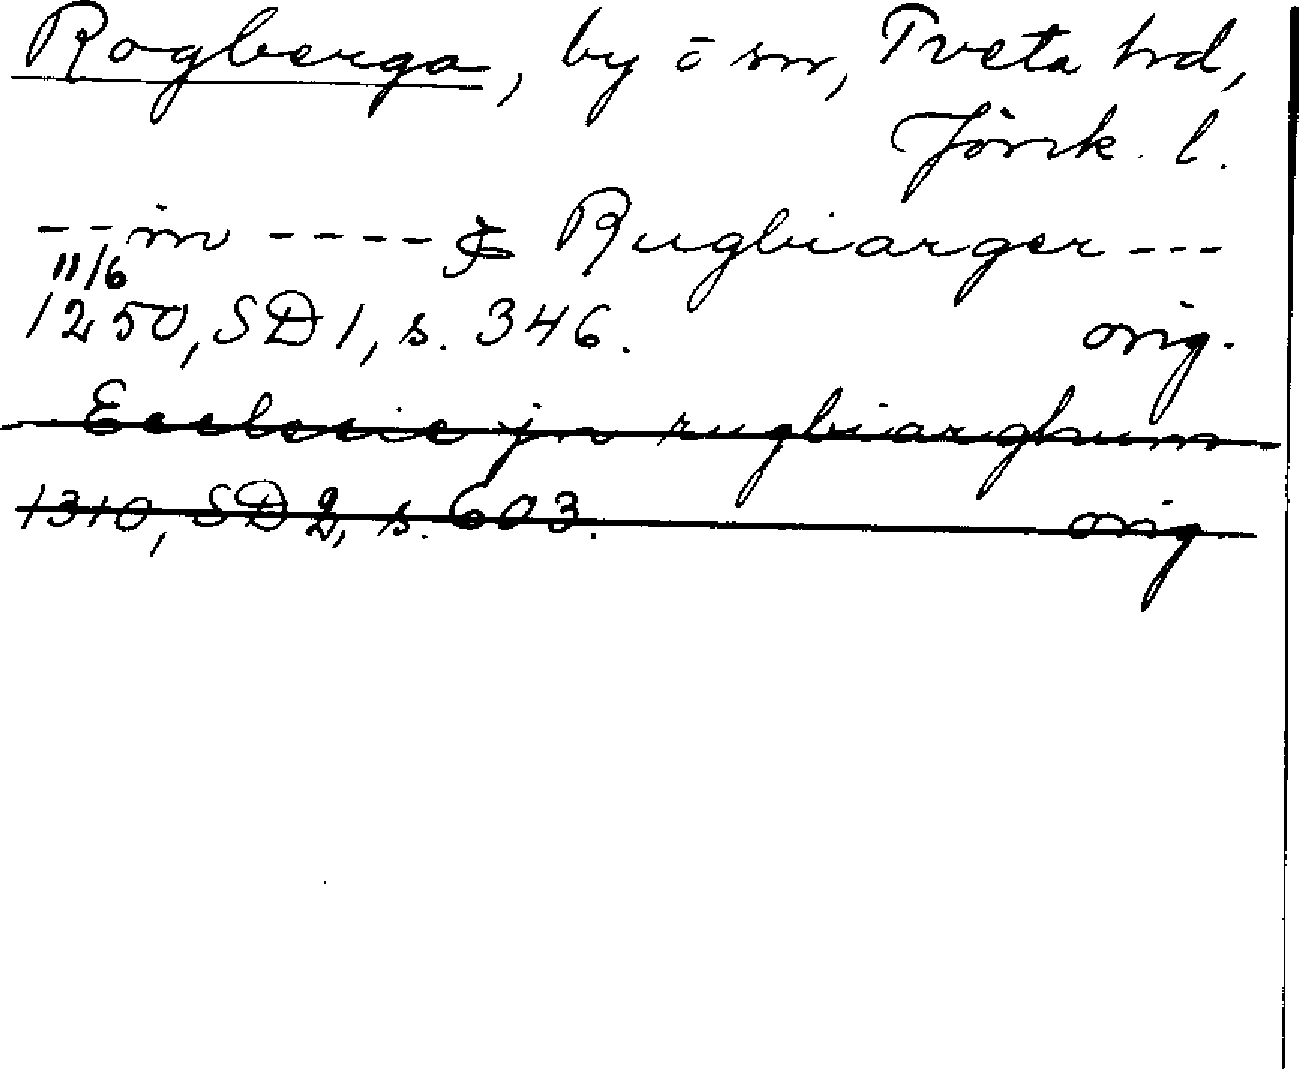 Rogberga, by o sn, Tveta hd,
Jönk. l.
-- in ---- & Rugbiarger ---
11/6
1250, SD 1, s. 346. orig.
Ecclesie jn rugbiarghum
1310, SD 2, s. 603. orig